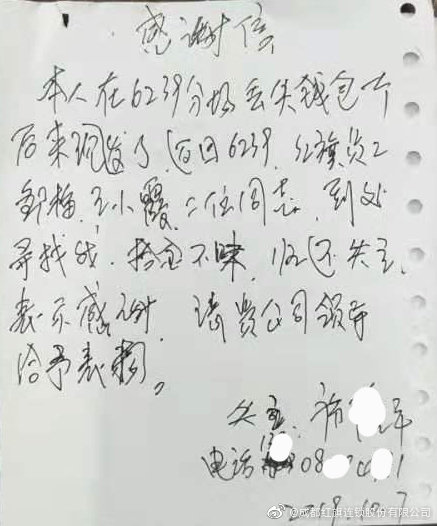 感谢信
本人在6239分场丢失钱包一个
后来现发了返回6239,红旗员工
郭梅,王小霞,二位同志,到处
寻找我,拾金不昧,归还失主,
表示感谢,请贵公司领导
给予表扬。
失主:
电话 08
2019.10.7
@成都红旗连锁股份有限公司